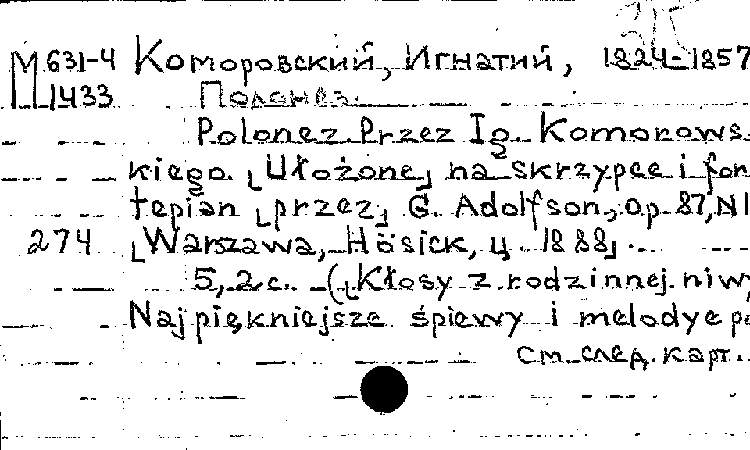 М 631-4 Коморовский, Игнатий, 1824-1857
1433 Полонез.
Polonez przez Ig. Komorows-
kiego. [Ułożone] na skrzypce i for
tepian [przez] G. Adolfson, op. 87, N1
274 [Warszawa, Hösick, ц. 1888].
5, 2 c. ([Kłosy z rodzinnej niwy
Najpiękniejsze śpiewy i melodye po
см. след. карт.